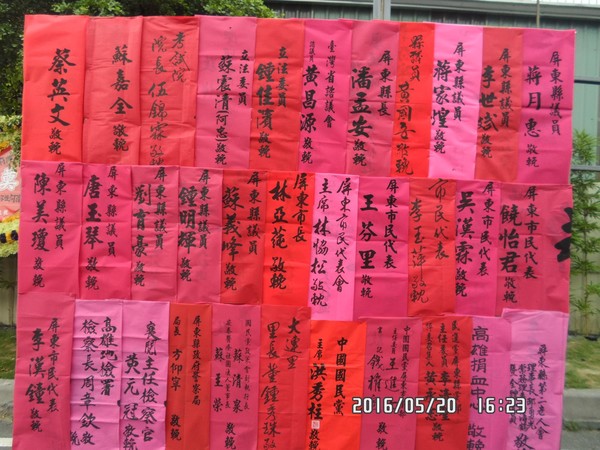 蔡英文 敬輓
蘇嘉全 敬輓
考試院
院長 伍錦霖 敬輓
立法委員
蘇震清 敬輓
立法委員
鍾佳濱 敬輓
臺灣省諮議會
黃昌源 敬輓
屏東縣長
潘孟安 敬輓
屏東縣議員
蔣家煌 敬輓
屏東縣議員
李世斌 敬輓
屏東縣議員
蔣月惠 敬輓
屏東縣議員
陳美瓊 敬輓
屏東縣議員
唐玉琴 敬輓
屏東縣議員
劉育豪 敬輓
屏東縣議員
鍾明理 敬輓
屏東縣議員
蘇義峰 敬輓
屏東市長
林亞蒓 敬輓
屏東市民代表會
主席 林協松 敬輓
屏東市民代表
王芬里 敬輓
市民代表
敬輓
屏東市民代表
吳漢霖 敬輓
屏東市民代表
饒怡君 敬輓
屏東市民代表
李漢鐘 敬輓
高雄地檢署
檢察長 周章欽 敬輓
主任檢察官
黃元冠 敬輓
屏東縣政府警察局
局長 方仰寧 敬輓
蘇清泉
蘇玉榮 敬輓
大連里
里長
中國國民黨
主席 洪秀柱 敬輓
高雄捐血中心 敬輓
2016/05/20 16:23